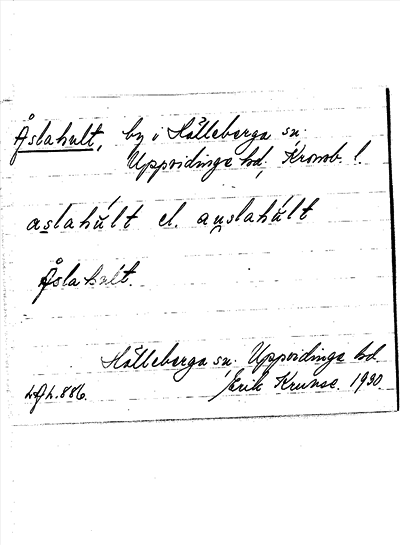 Åslahult, by i Hälleberga sn.
Uppvidinge hd, Kronob. l.
aslahúlt el. auslahúlt
Åslahult.
Hälleberga sn. Uppvidinge hd.
Erik Kruuse. 1930.